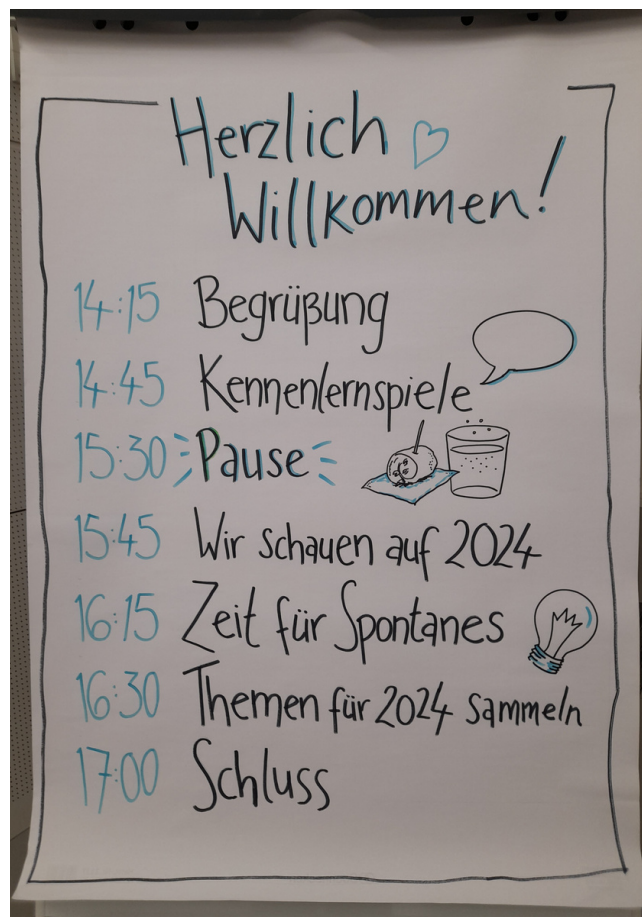 Herzlich
Willkommen!
14:15 Begrüßung
14:45 Kennenlernspiele
15:30 Pause
15:45 Wir schauen auf 2024
16:15 Zeit für Spontanes
16:30 Themen für 2024 sammeln
17:00 Schluss